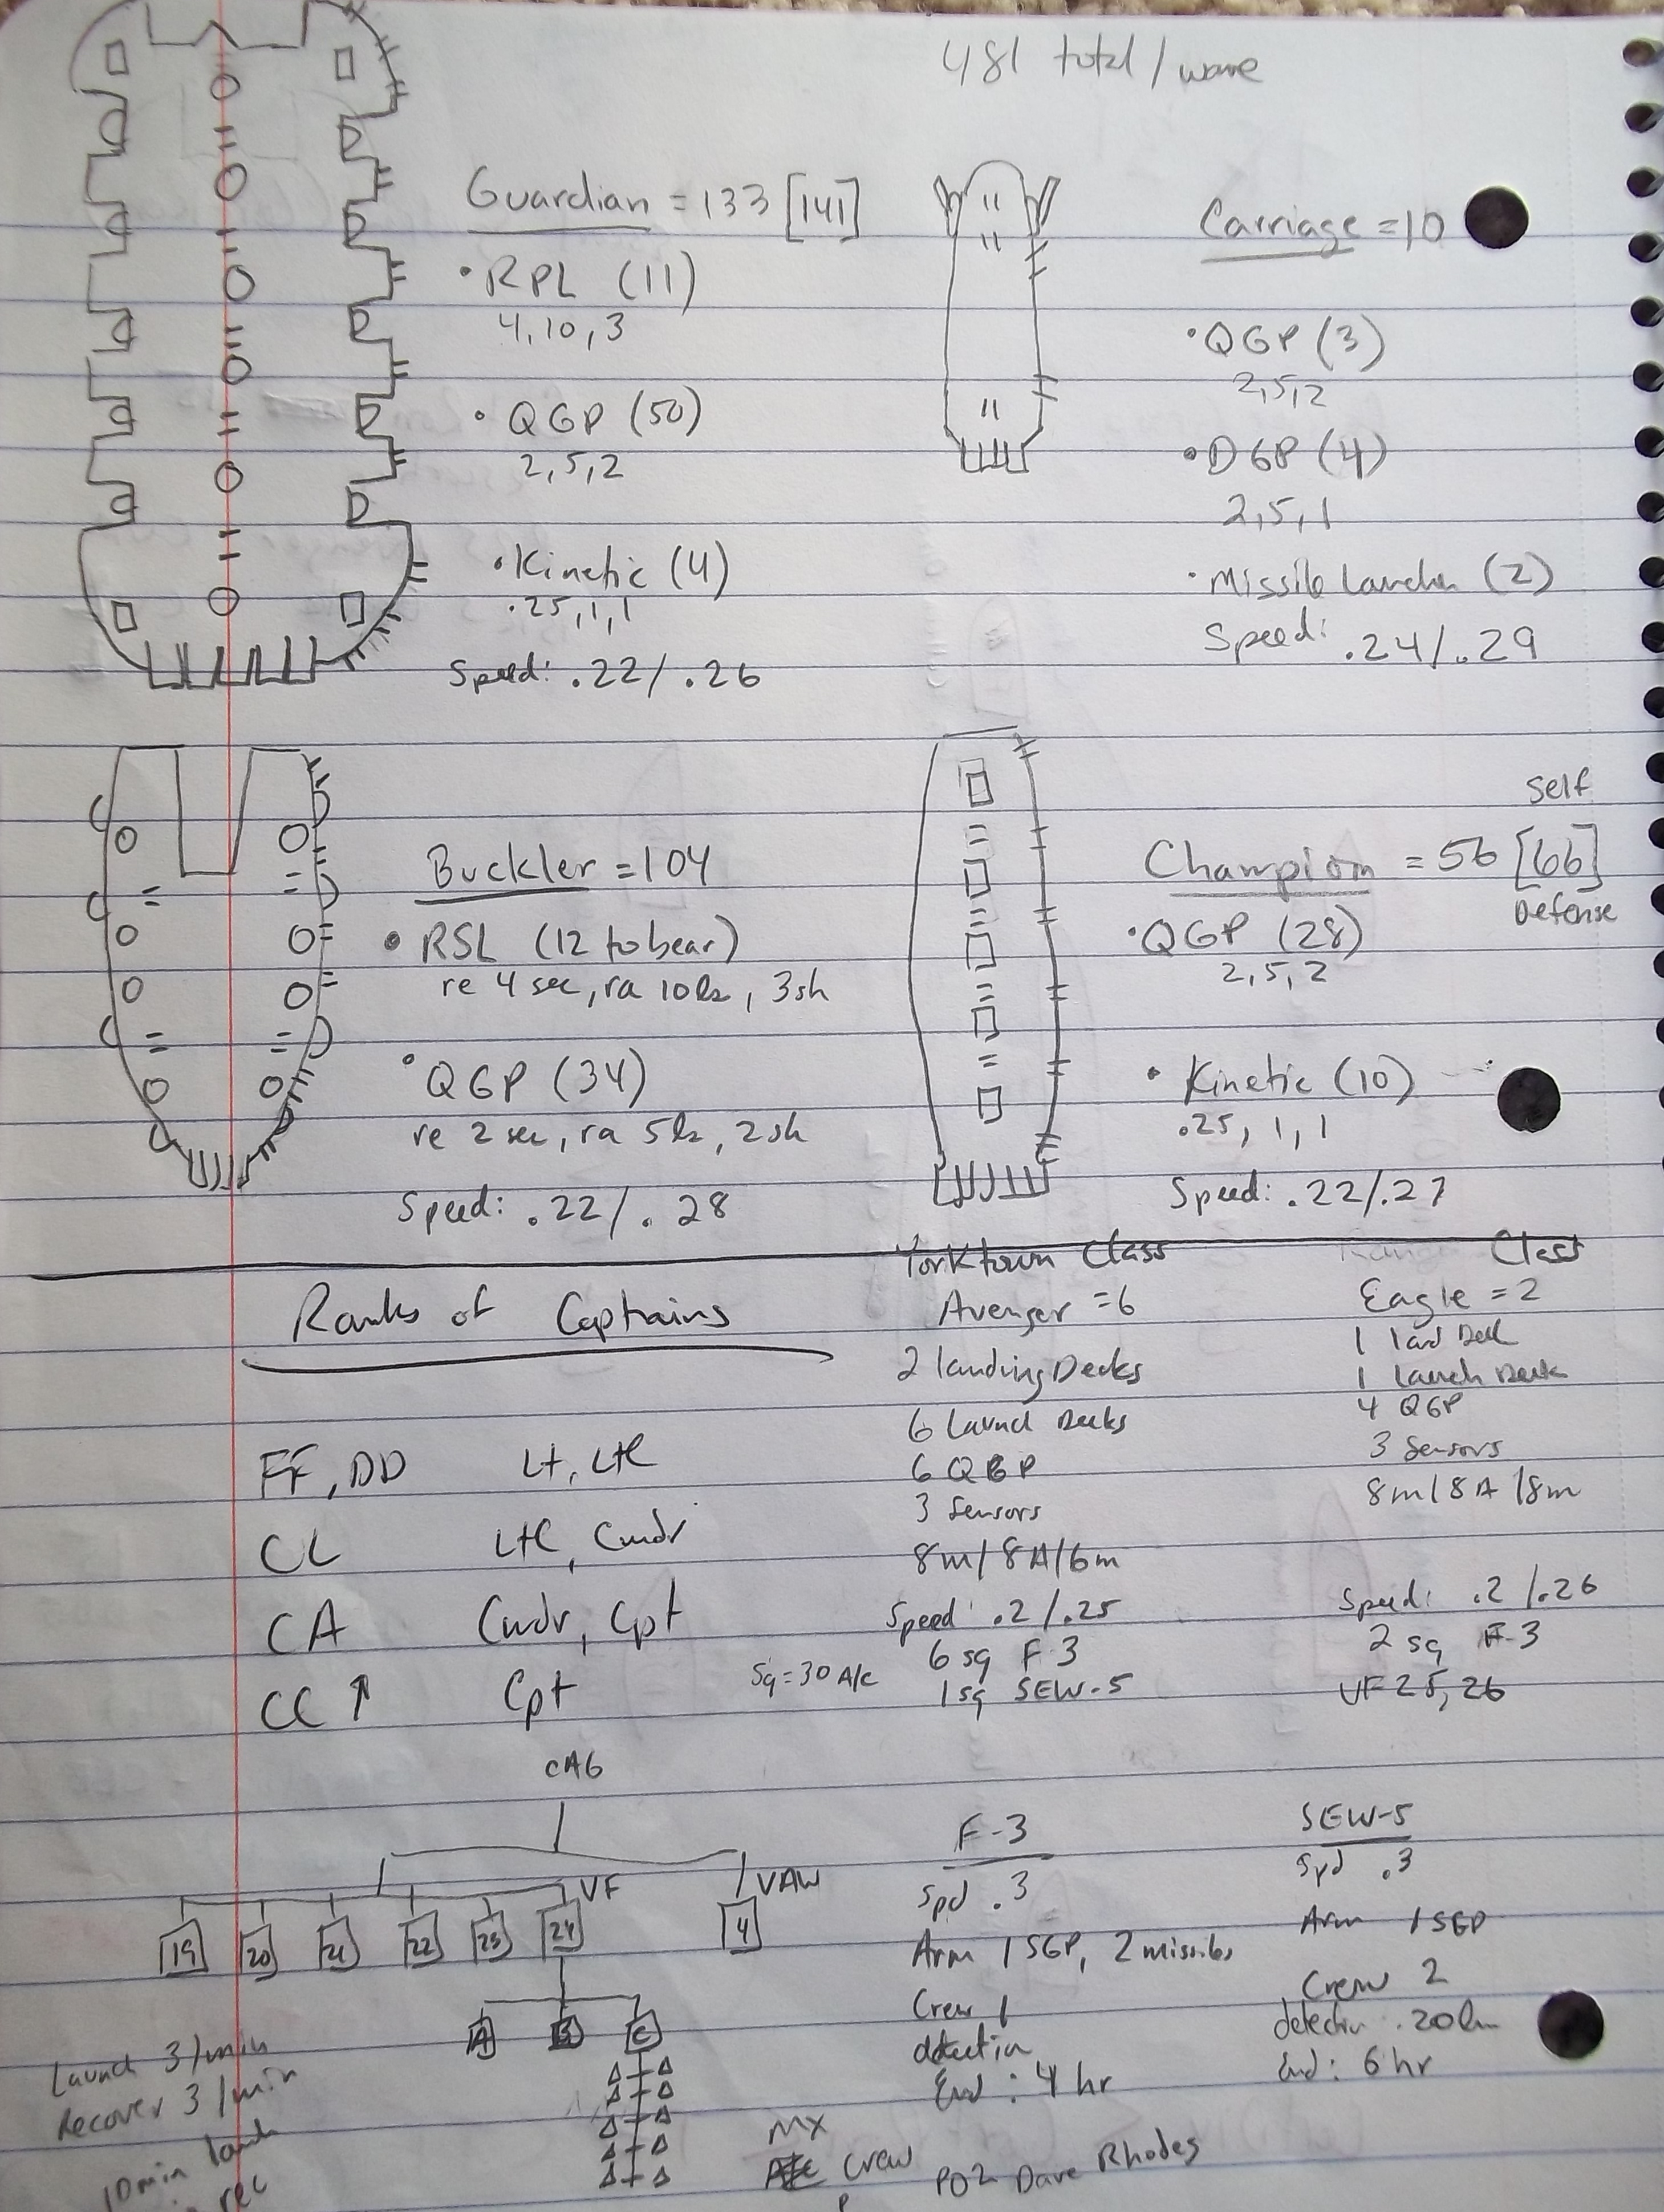 481 total / wave
Guardian = 133 [141]
• RPL (11)
4, 10, 3
• QGP (50)
2, 5, 2
• Kinetic (4)
.25, 1, 1
Speed: .22/.26
Carriage = 10
• QGP (3)
2, 5, 2
• DGP (4)
2, 5, 1
• Missile Launcher (2)
Speed: .24/.29
Buckler = 104
• RSL (12 to bear)
re 4 sec, ra 10ls, 3sh
• QGP (34)
re 2 sec, ra 5ls, 2sh
Speed: .22/.28
Self
Champion = 56 [66]
Defense
• QGP (28)
2, 5, 2
• Kinetic (10)
.25, 1, 1
Speed: .22/.27
Ranks of Captains
FF, DD Lt, LtC
CL LtC, Cmdr
CA Cmdr, Cpt
CC ↑ Cpt
Yorktown Class
Avenger = 6
2 landing Decks
6 Launch Decks
6 QGP
3 Sensors
8m/8A/6m
Speed .2/.25
6 sq F-3
Sq = 30 A/c
1 sq SEW-5
Class
Eagle = 2
1 land Deck
1 Launch Deck
4 QGP
3 Sensors
8m/8A/8m
Speed: .2/.26
2 sq F-3
VF 25, 26
CAG
VF
VAW
19 20 21 22 23 24
4
A B C
Launch 3/min
Recover 3/min
10min
rec
F-3
Spd .3
Arm 1 SGP, 2 missiles
Crew 1
detection
End: 4 hr
SEW-5
Spd .3
Arm 1 SGP
Crew 2
detection .20
End: 6 hr
MX
Crew
PO2 Dave Rhodes
P